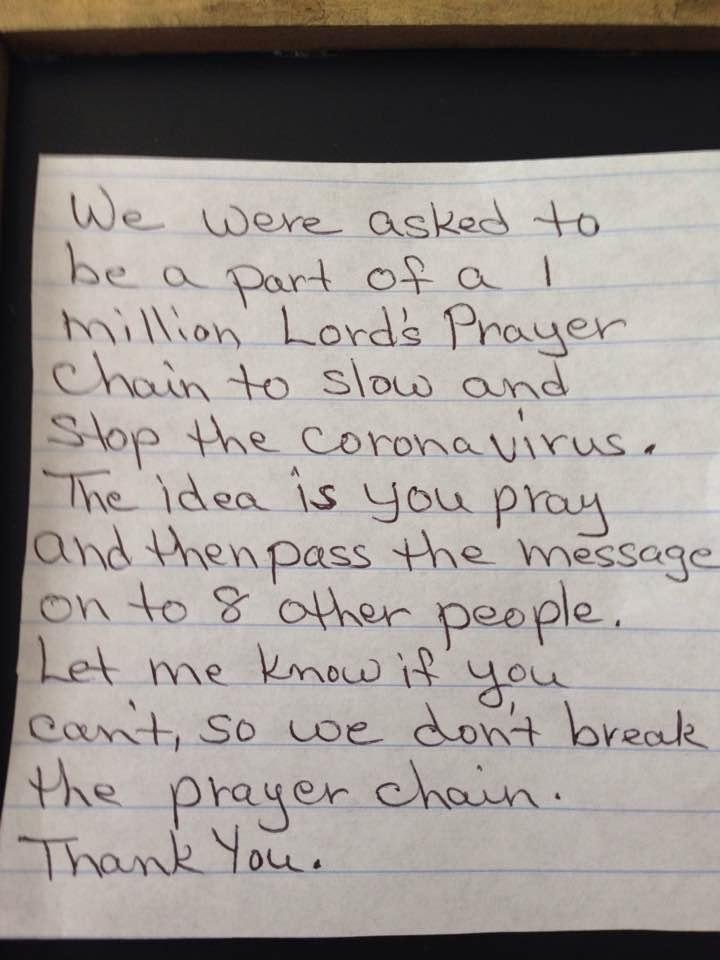 We were asked to
be a part of a 1
million Lord's Prayer
Chain to slow and
Stop the coronavirus.
The idea is you pray
and then pass the message
on to 8 other people.
Let me know if you
can't, so we don't break
the prayer chain.
Thank You.